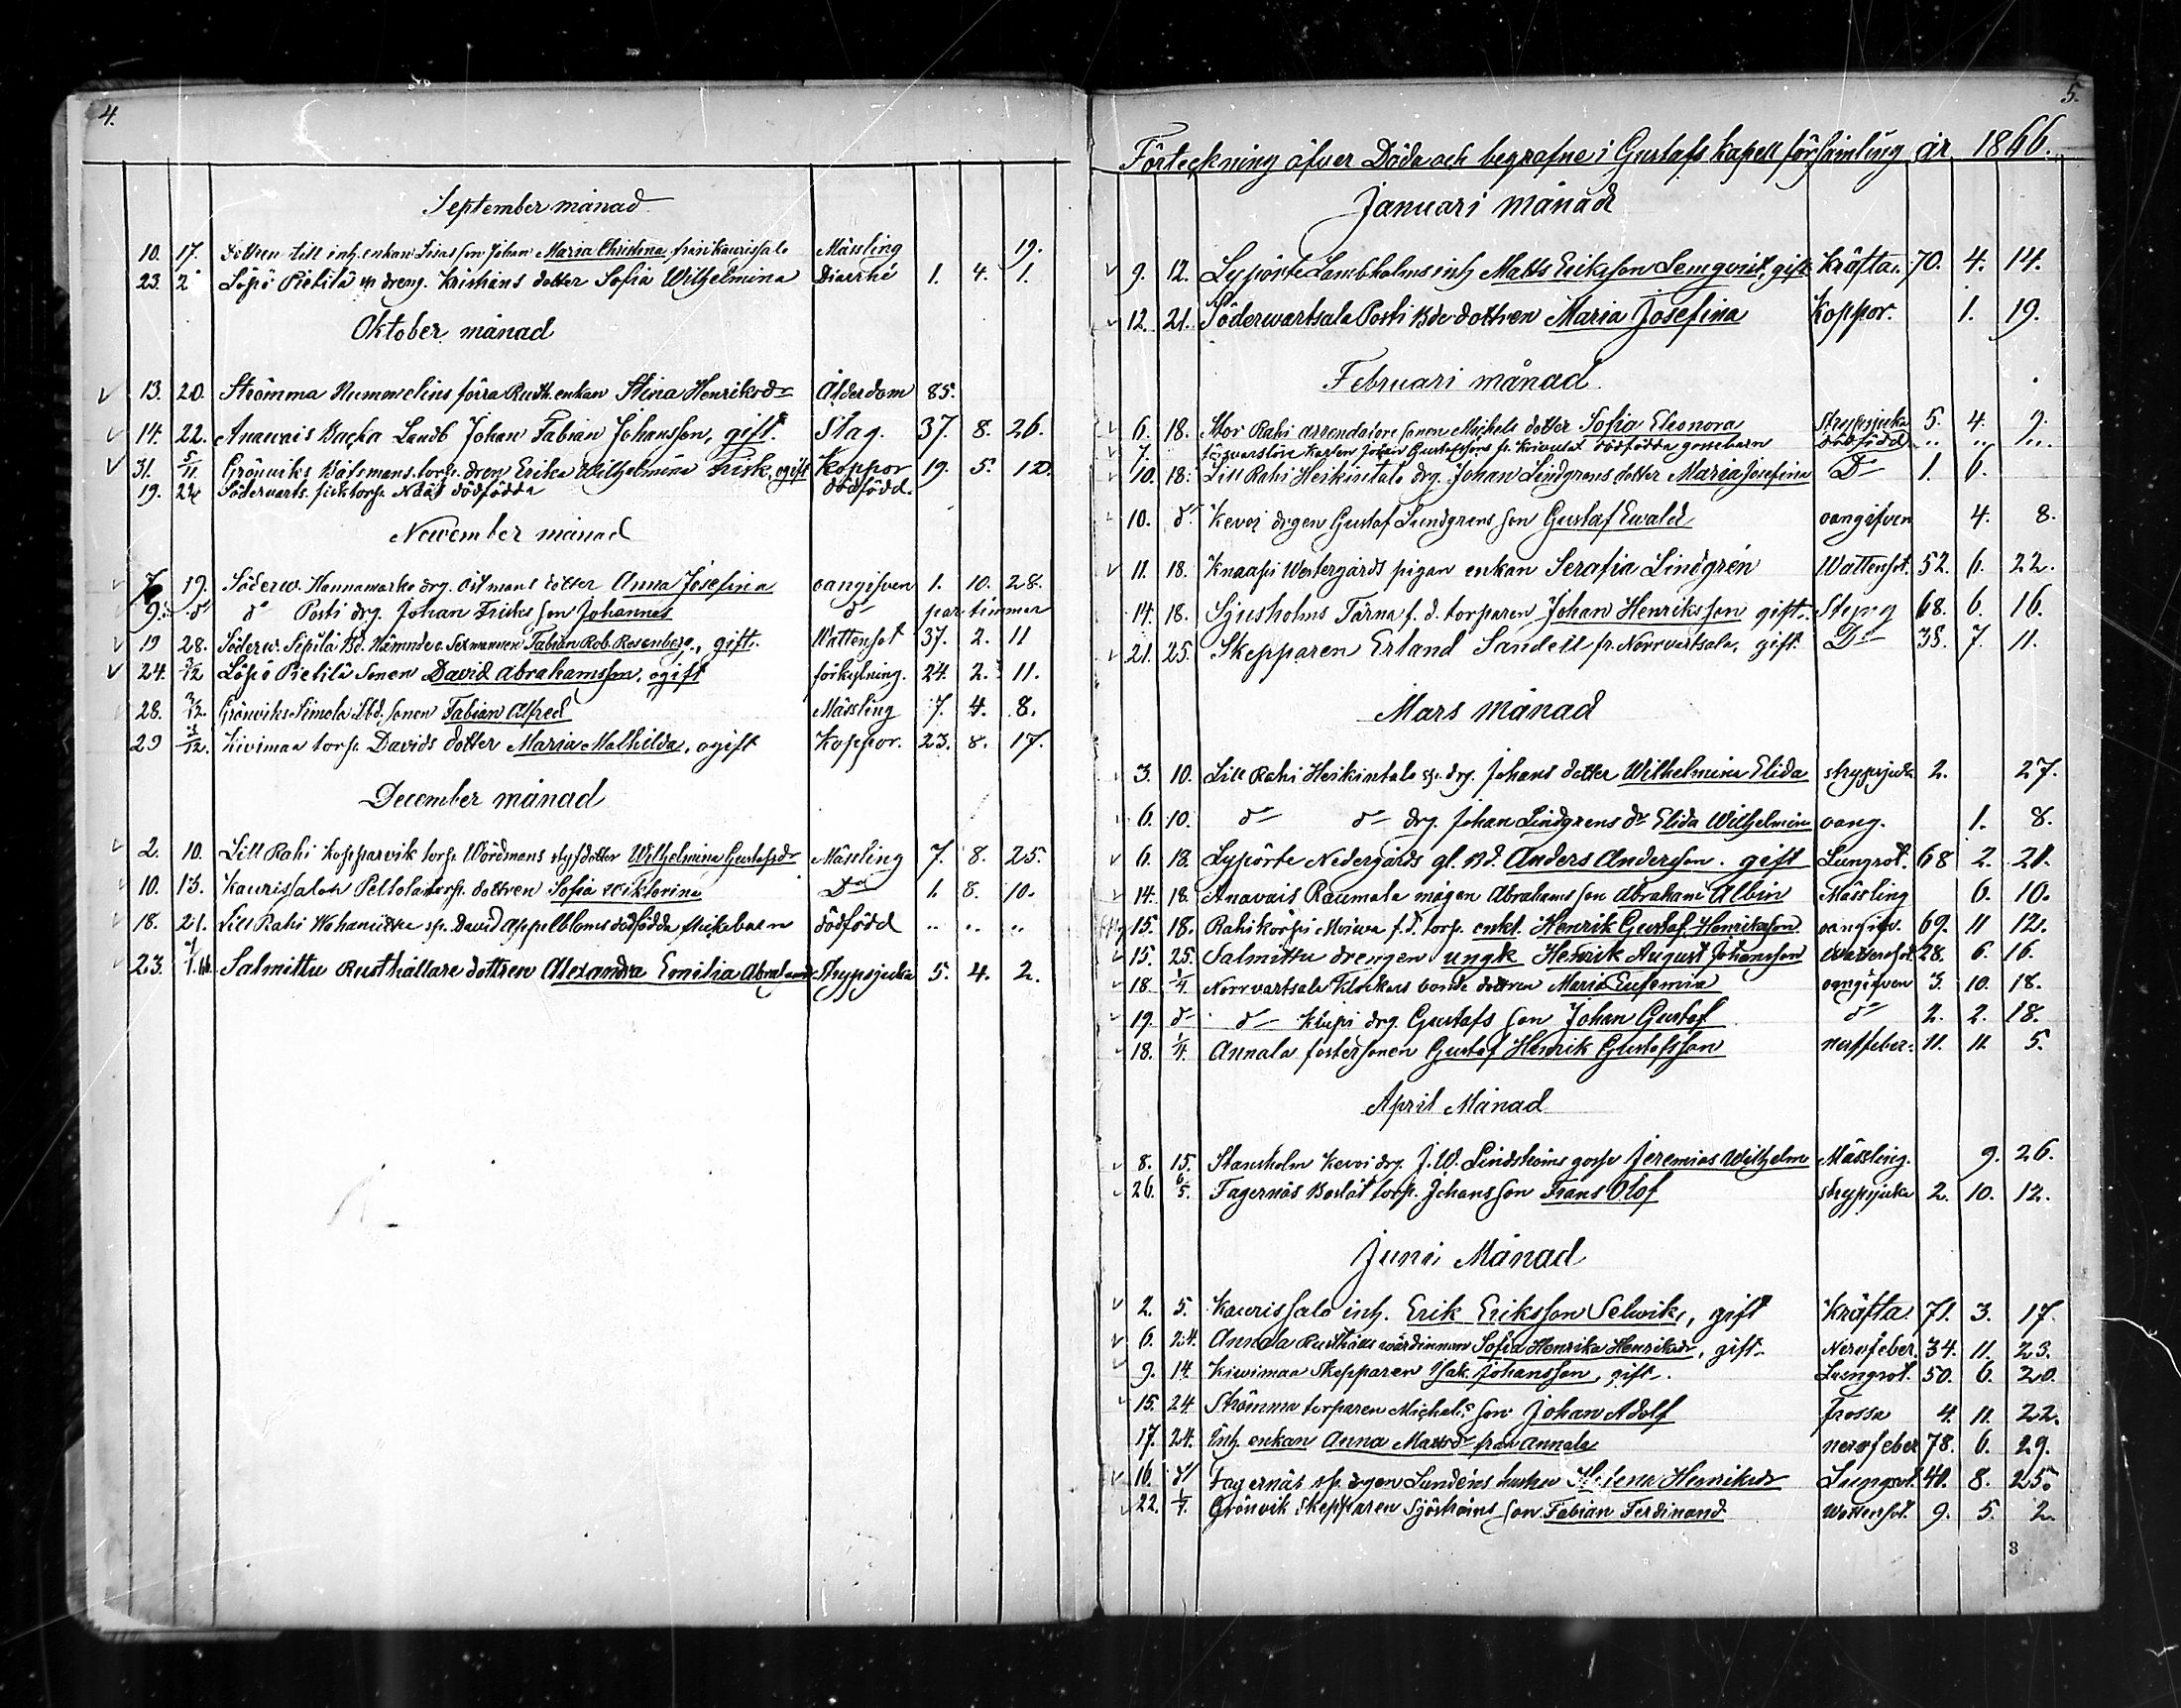 4.
September månad
10. 17. Dottren till inh. enkan Lisas son Johan Maria Christina från Kaurissalo Mässling 19.
23. 2 Löpö Pietilä dreng. Kristians dotter Sofia Wilhelmina Diarrhé 1. 4. 1.
Oktober månad
13. 20. Strömma Nummelins förra Rusth. enkan Stina Henriksdr Ålderdom 85.
14. 22. Anavais Backa Landb Johan Fabian Johansson, gift. Slag. 37. 8. 26.
31. 5/11 Grönviks Båtsmans torp. dren Erika Wilhelmina Frisk, ogift Koppor 19. 5. 12.
19. 24 Södervarts. torp. dödfödda dödfödd.
November månad
7 19. Söderw. Hannamarks drg. Östmans dotter Anna Josefina oangifven 1. 10. 28.
9. do do Posti drg. Johan Frisks son Johannes do par timmar
19 28. Söderw. Sipilä Bd. Nämnde o. Sexmannen Fabian Rob. Rosenberg., gift. Wattensot 37. 2. 11
24. 3/12 Löpö Pietilä Sonen David Abrahamsson, ogift förkylning. 24. 2. 11.
28. 3/12. Grönviks Simola Lbd. sonen Fabian Alfred Mässling 7. 4. 8.
29 3/12. Kivimaa torp. Davids dotter Maria Mathilda, ogift Koppor. 23. 8. 17.
December månad
2. 10. Lill Rahi Kopparvik torp. Wördmans styfdotter Wilhelmina Gustafsdr Mässling 7. 8. 25.
10. 13. Kaurissalo Peltola torp. dottren Sofia Wiktorina Do 1. 8. 10.
18. 21. Lill Rahi David Appelbloms dödfödda flickebarn dödfödd .. .. ..
23. 1/1.66. Salmittu Rusthållare dottren Alexandra Emilia Abrahamsdr Strypsjuka 5. 4. 2.
5.
Förteckning öfver Döda och begrafne i Gustafs Kapell församling år 1866.
Januari månad
9. 12. Lypörte Lambholms inh Matts Eriksson Lemqvist, gift Kräfta. 70. 4. 14.
12. 21. Södervartsala Posti Bde dottren Maria Josefina Koppor. 1. 19.
Februari månad.
6. 18. Stor Rahi arrendatore sonen Mickels dotter Sofia Eleonora Strypsjuka 5. 4. 9.
7. Johan Gustafssons dödfödda gossebarn dödfödd .. .. ..
10. 18. Lill Rahi Heikintalo drg. Johan Lindgrens dotter Maria Josefina Do 1. 6.
10. do Kevoi drgen Gustaf Lundgrens son Gustaf Ewald oangifven 4. 8.
11. 18. Knaapi Westergårds pigan enkan Serafia Lindgrén Wattensot. 52. 6. 22.
14. 18. Sjusholms Tärna f. d. torparen Johan Henriksson gift. Styng 68. 6. 16.
21. 25. Skepparen Erland Sandell fr. Norrvartsala, gift. Do 38. 7. 11.
Mars månad
3. 10. Lill Rahi Heikintalo sp. drg. Johans dotter Wilhelmina Elida strypsjuka 2. 27.
6. 10. do do drg. Johan Lindgrens dr Elida Wilhelmin oang. 1. 8.
6. 18. Lypörte Nedergårds gl. Bd. Anders Andersson. gift Lungsot. 68 2. 21.
14. 18. Anavais Raumala mågen Abrahams son Abraham Albin Mässling 6. 10.
15. 18. Rahikorpi f.d. torp. enkl. Henrik Gustaf Henriksson oangifv. 69. 11 12.
15. 25. Salmittu drengen ungk Henrik August Johansson Wattensot 28. 6. 16.
18. 1/4. Norrvartsala Klockars bonde dottren Maria Eufemia oangifven 3. 10. 18.
19. do do Klupi drg. Gustafs son Johan Gustaf do 2. 2. 18.
18. 1/4. Annala fostersonen Gustaf Henrik Gustafsson nerffeber. 11. 11 5.
April Månad
8. 15. Stamholm Kevoi drg. J.W. Lindströms gosse Jeremias Wilhelm Mässling. 9. 26.
26. 6/5. Fagernäs torp. Johans son Frans Olof strypsjuka 2. 10. 12.
Juni Månad
2. 5. Kaurissalo inh. Erik Eriksson Selvik, gift Kräfta 71. 3. 17.
6. 24. Annala Rusthålls wärdinnan Sofia Henrika Henriksdr, gift Nervfeber. 34. 11. 23.
9. 14 Kivimaa Skepparen Isak Johansson, gift. Lungsot. 50. 6. 20.
15. 24 Strömma torparen Michels son Johan Adolf frossa 4. 11. 22.
17. 24. Inh. enkan Anna Mattsdr från Annala nervfeber 78. 6. 29.
16. do Fagernäs sp. drgen Lundéns hustru Helena Henriksdr Lungsot. 40. 8. 25.
22. 1/7. Grönvik Skepparen Sjöströms son Fabian Ferdinand Wattensot. 9. 5. 2.
3